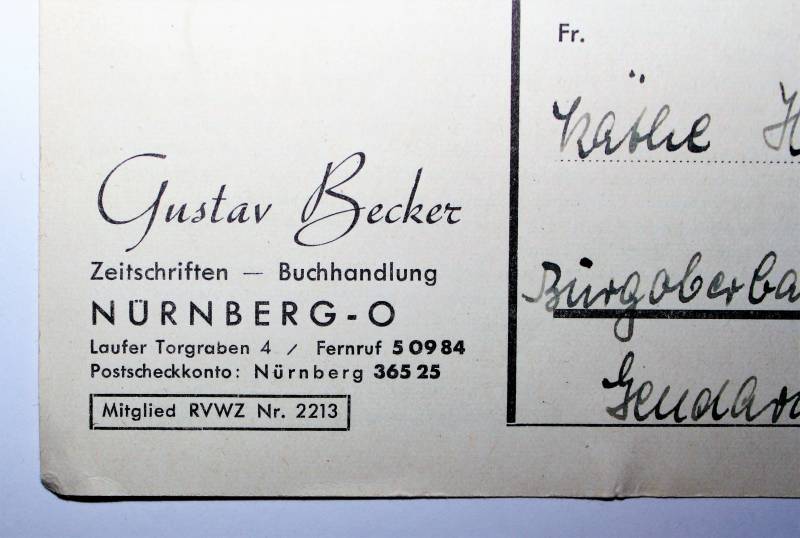 Gustav Becker
Zeitschriften — Buchhandlung
NÜRNBERG-O
Laufer Torgraben 4 / Fernruf 5 09 84
Postscheckkonto: Nürnberg 365 25
Mitglied RVWZ Nr. 2213
Fr.
Käthe